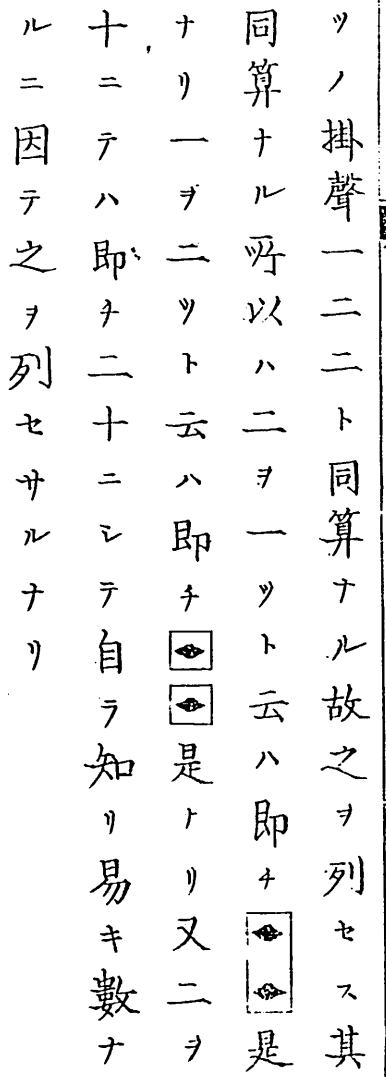 ツノ掛聲一二二ト同算ナル故之ヲ列セス其
同算ナル所以ハ二ヲ一ツト云ハ即チ是
ナリ一ヲ二ツト云ハ即チ是トリ又二ヲ
十ニテハ即チ二十ニシテ自ラ知リ易キ數ナ
ルニ因テ之ヲ列セサルナリ